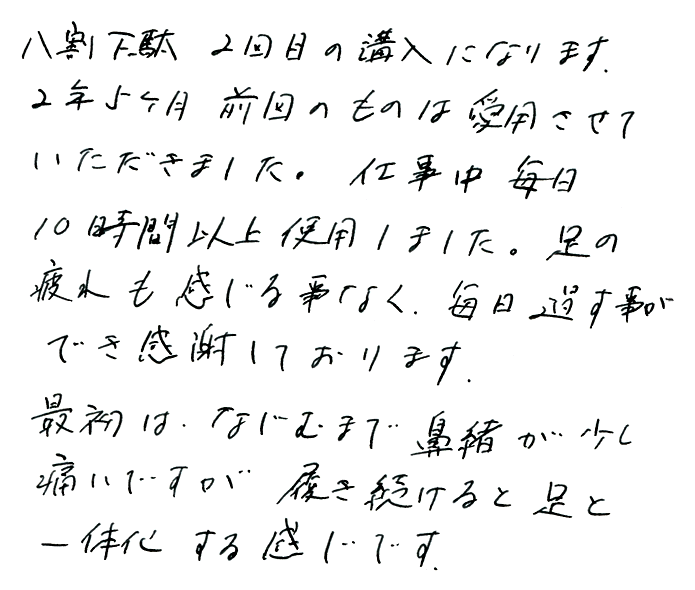 八割下駄 2回目の購入になります.
2年5ヶ月 前回のものは愛用させて
いただきました。仕事中 毎日
10時間以上使用しました。足の
疲れも感じる事なく、毎日過す事が
でき感謝しております.
最初は、なじむまで鼻緒が少し
痛いですが 履き続けると足と
一体化する感じです.